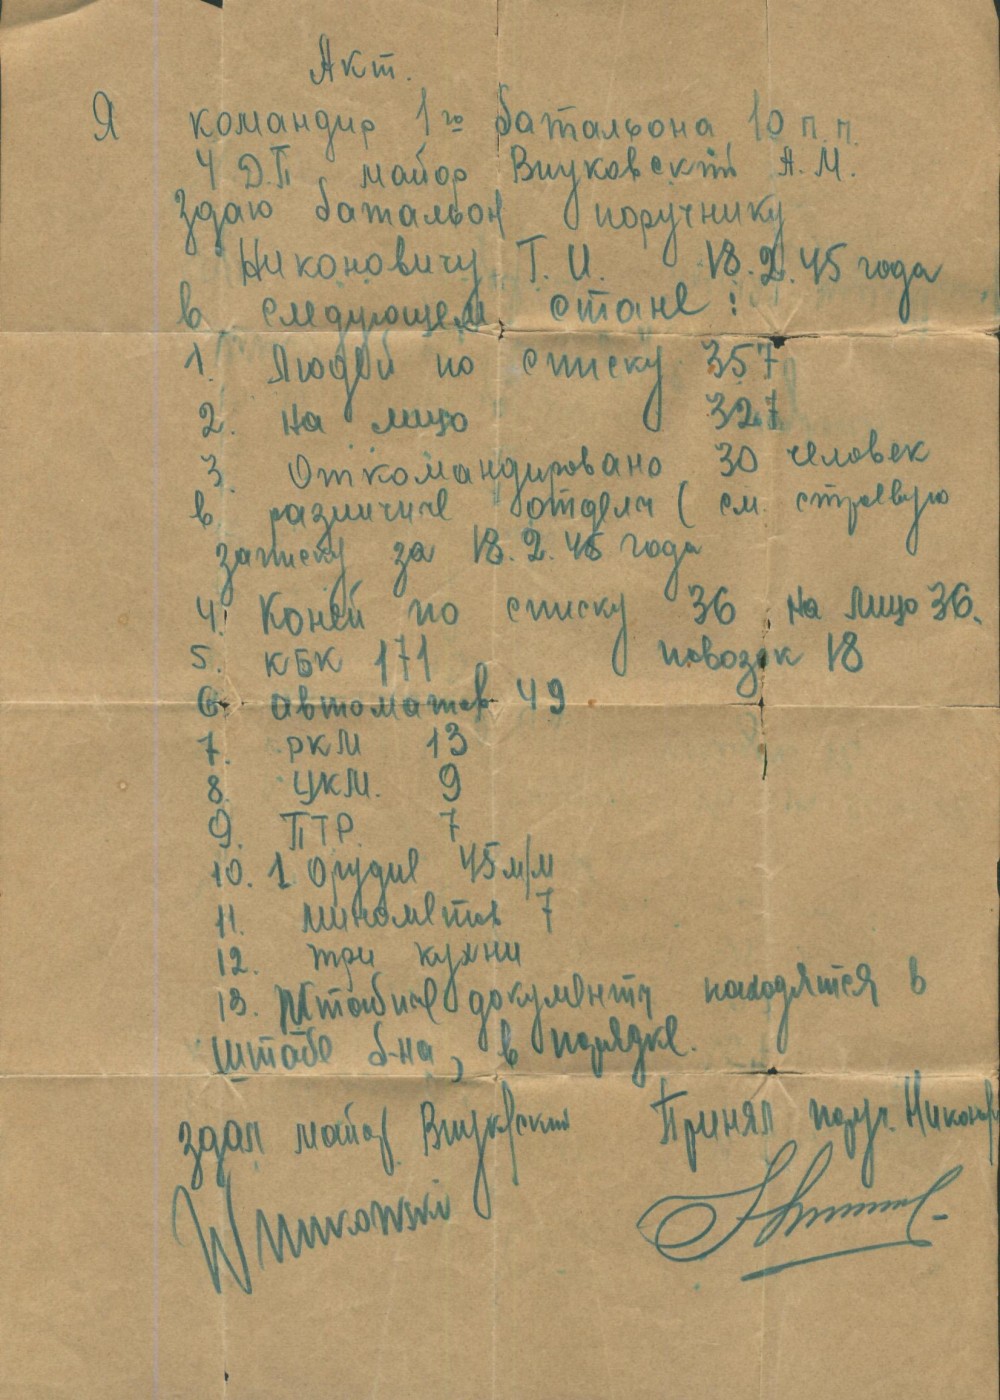 Акт.
Я командир 1го батальона 10 п.п.
4 Д.П майор Внуковский А.М.
здаю батальон поручнику
Никоновичу Т. И. 18.2.45 года
в следующем стане:
1. Людей по списку 357
2. На лицо 327
3. Откомандировано 30 человек
в различные отделы (см. строевую
записку за 18.2.45 года
4. Коней по списку 36 на лицо 36.
5. КБК 171 повозок 18
6 автоматов 49
7. РКМ 13
8. ЦКМ. 9
9. ПТР. 7
10. 1 Орудие 45 м/м
11. минометов 7
12. три кухни
13. Штабные документы находятся в
штабе б-на, в порядке.
здал майор Внуковский Принял поруч.
Wnukowski